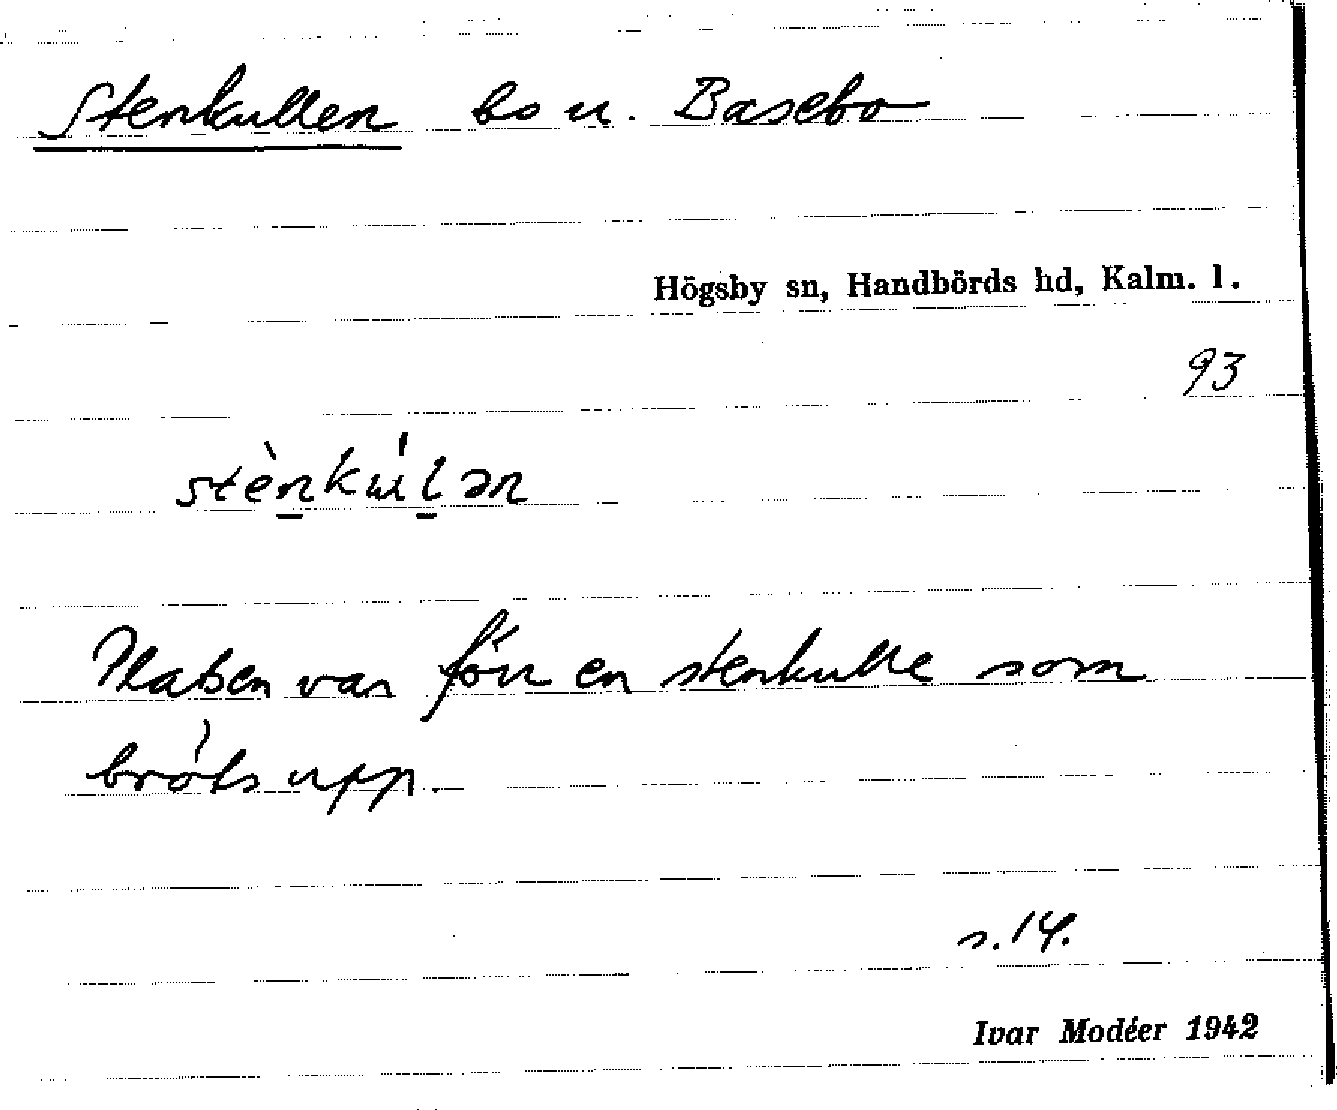 Stenkullen bs u. Basebo
Högsby sn, Handbörds hd, Kalm. l.
93
stènkúlən
Platsen var förr en stenkulle som
bröts upp.
s. 14.
Ivar Modéer 1942